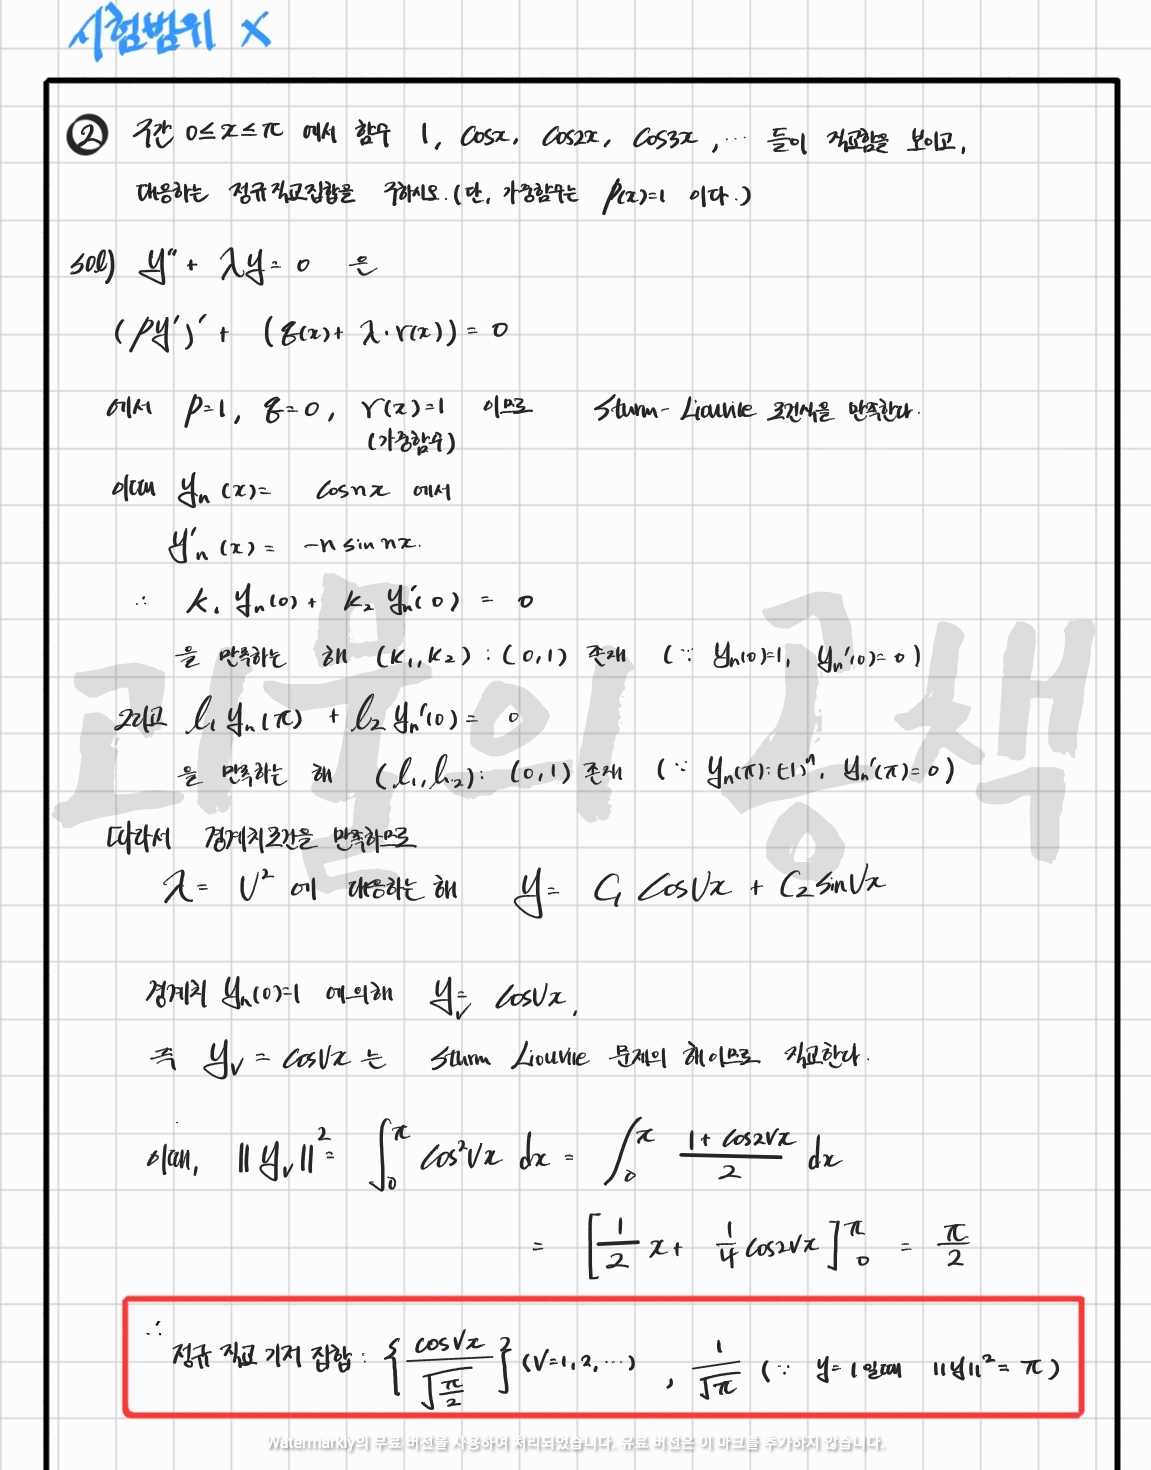 시험범위 X
② 구간 0≤x≤π 에서 함수 1, cosx, cos2x, cos3x, ... 들이 직교함을 보이고,
대응하는 정규직교집합을 구하시오. (단, 가중함수는 p(x)=1 이다.)
sol) y''+ λy= 0 은
(py')'+ (q(x)+ λ·r(x)) = 0
에서 p=1, q=0, r(x)=1 이므로 Sturm-Liouvile 조건식을 만족한다.
(가중함수)
이때 yn(x)= cosnx 에서
y'n(x)= -n sin nx.
∴ k1 yn(0)+ k2 yn'(0) = 0
을 만족하는 해 (k1, k2) : (0,1) 존재 (∵ yn(0)=1, yn'(0)=0)
그리고 l1 yn(π) + l2 yn'(0)= 0
을 만족하는 해 (l1, l2): (0,1) 존재 (∵ yn(π):(-1)^n, yn'(π)=0)
따라서 경계치조건을 만족하므로
λ= ν² 에 대응하는 해 y= C1 cosνx + C2 sinνx
경계치 yn(0)=1 에의해 yν= cosνx,
즉 yν = cosνx 는 Sturm Liouvile 문제의 해이므로 직교한다.
이때, ||yν||²= ∫₀^π cos²νx dx = ∫₀^π (1+cos2νx)/2 dx
= [1/2 x+ 1/4 cos2νx]₀^π = π/2
∴ 정규 직교 기저 집합: {cosνx/√(π/2)} (ν=1,2,...), 1/√π (∵ y=1일때 ||y||²= π)
괴물의 공책
Watermarkly의 무료 버전을 사용하여 처리되었습니다. 유료 버전은 이 마크를 추가하지 않습니다.